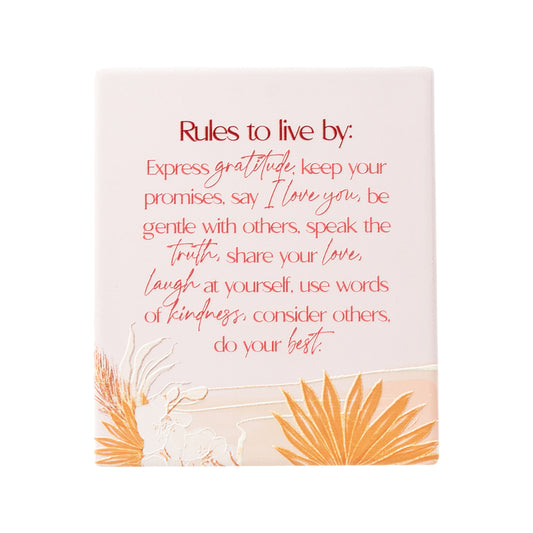 Rules to live by:
Express gratitude, keep your
promises, say I love you, be
gentle with others, speak the
truth, share your love,
laugh at yourself, use words
of kindness, consider others,
do your best.